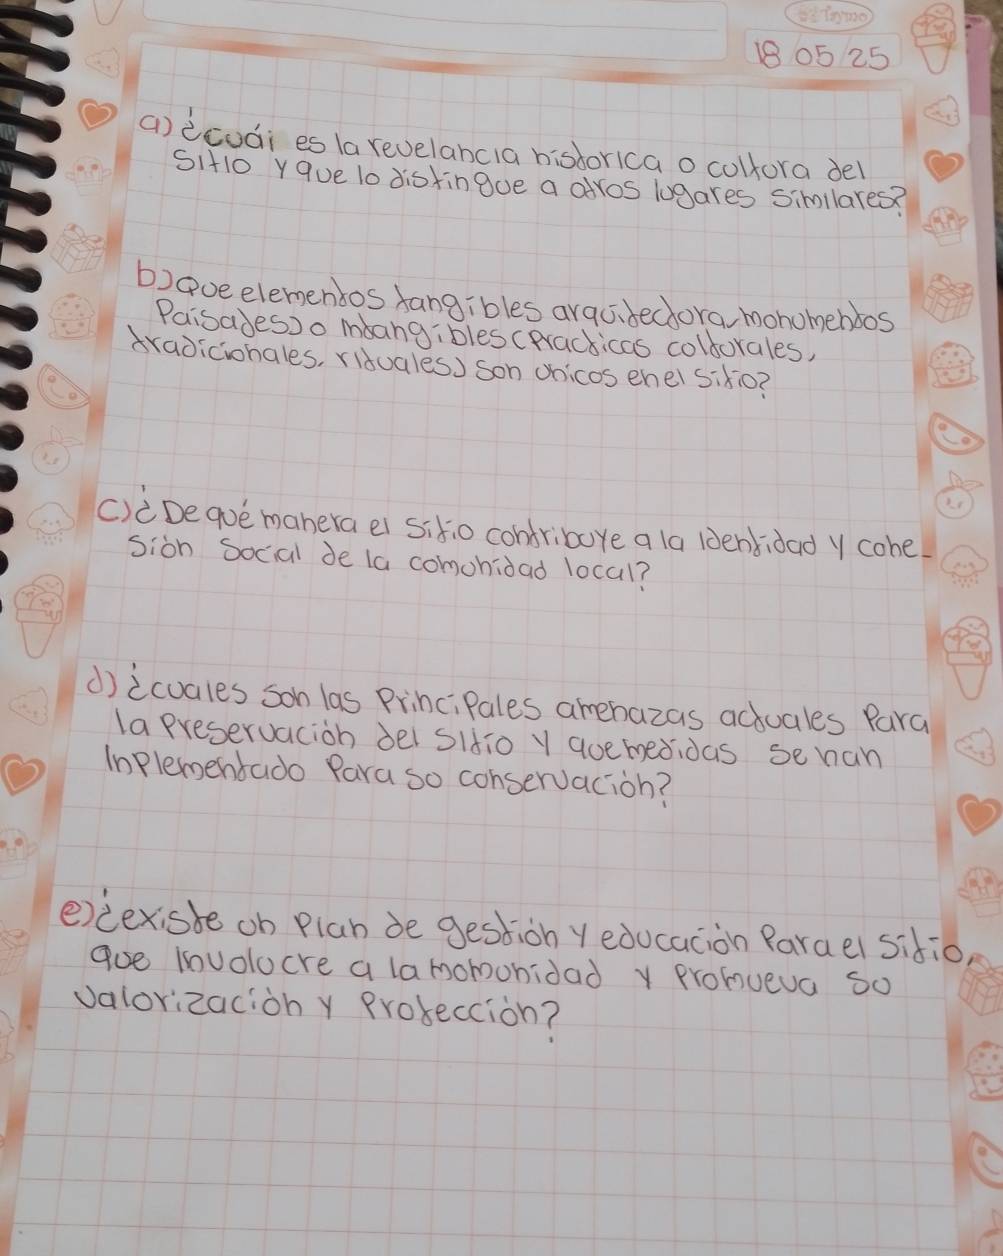 18 05 25
a) ¿cuál es la revelancia historica o cultura del
sitio y que lo distingue a otros lugares similares?
b) que elementos tangibles arquitectora, monumentos
Paisajes) o intangibles (Practicas culturales,
tradicionales, rituales) son unicos en el sitio?
c) ¿De qué manera el sitio contribuye a la identidad y cohe-
sión social de la comunidad local?
d) ¿cuales son las Principales amenazas actuales Para
la Preservación del sitio y que medidas se han
inplementado Para su conservación?
e) ¿existe un Plan de gestión y educación Para el sitio,
que involucre a la momunidad y Promueva su
valorización y Protección?